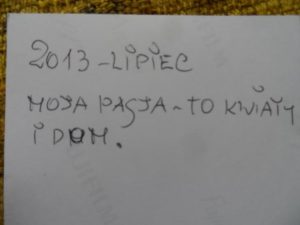 2013-LIPIEC
MOJA PASJA-TO KWIATY
I DOM.